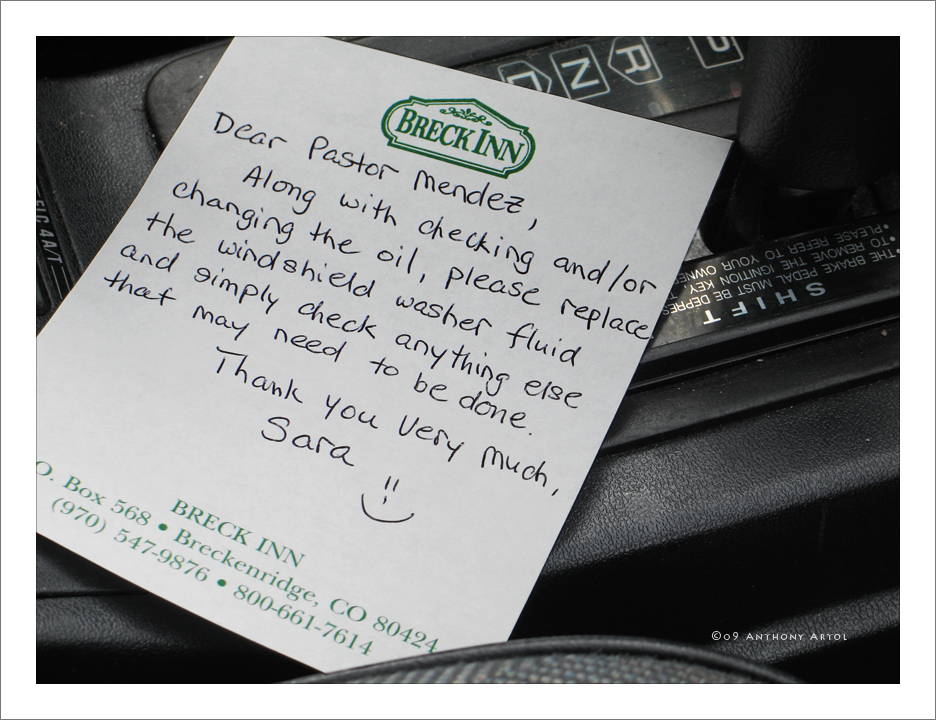 BRECK INN
Dear Pastor Mendez,
Along with checking and/or
changing the oil, please replace
the windshield washer fluid
and simply check anything else
that may need to be done.
Thank you very much,
Sara
BRECK INN
O. Box 568 • Breckenridge, CO 80424
(970) 547-9876 • 800-661-7614
D N R P
SHIFT
THE BRAKE PEDAL MUST BE DEPRES
• TO REMOVE THE IGNITION KEY, T
• PLEASE REFER TO YOUR OWNE
©09 ANTHONY ARTOL